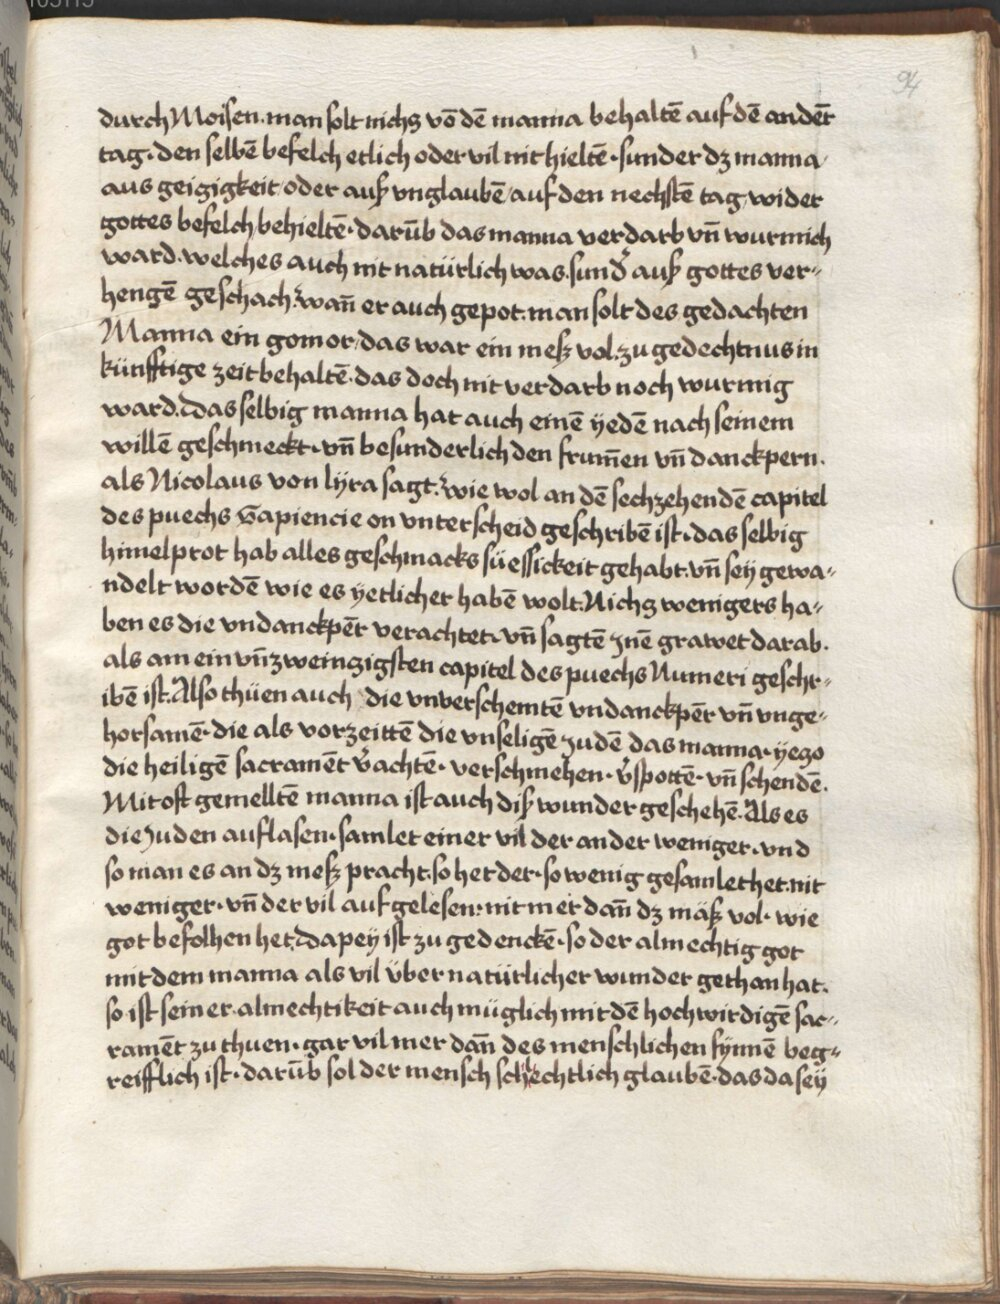 94
durch Moisen. man solt nichs vō dē manna behaltē auf dē andeř
tag· den selbē befelch etlich oder vil nit hieltē· sunder dz manna
aus geizigkeit/ oder auß vnglaubē/ auf den nechstē tag/ wider
gottes befelch behieltē· darūb das manna verdarb vn̄ wurmich
ward· welches auch nit natürlich was. sund̓ auß gottes ver-
hengē geschach· wan̄ er auch gepot. man solt des gedachten
Manna ein gomor/ das war ein meß vol. zu gedechtnus in
künfftige zeit behaltē· das doch nit verdarb noch wurmig
ward. Dasselbig manna hat auch einē yedē nach seinem
willē geschmeckt· vn̄ besunderlich den frum̄en vn̄ danckpern.
als Nicolaus von lÿra sagt. wie wol an dē sechzehendē capitel
des puechs Sapiencie on vnterscheid geschribē ist· das selbig
himelprot hab alles geschmacks süessickeit gehabt. vn̄ seÿ gewa-
ndelt wordē wie es yetlicher habē wolt. Nichs wenigers ha-
ben es die vndanckpēr verachtet· vn̄ sagtē jnē grawet darab.
als am ein vn̄ zweinzigsten capitel des puechs Numeri geschr-
ibē ist. Also thüen auch die vnverschemtē vndanckpēr vn̄ vnge-
horsamē· die als vorzeittē die vnseligē judē das manna· yezo
die heiligē sacramēt v̓achtē· verschmehen· v̓spottē· vn̄ schendē.
Mit oft gemelltē manna ist auch diß wunder geschehē. Als es
die Juden auflasen· samlet einer vil der ander weniger· vnd
so man es an dz meß pracht. so het der· so wenig gesamlet het. nit
weniger· vn̄ der vil auf gelesen· nit mer dan̄ dz mäß vol· wie
got befolhen het. Dapeÿ ist zu gedenckē· so der almechtig got
mit dem manna als vil über natürlicher wunder gethan hat.
so ist seiner almechtikeit auch müglich mit dē hochwirdigē sac-
ramēt zu thuen· gar vil mer dan̄ des menschlichen synnē beg-
reifflich ist· darūb sol der mensch schlechtlich glaubē· das da seÿ